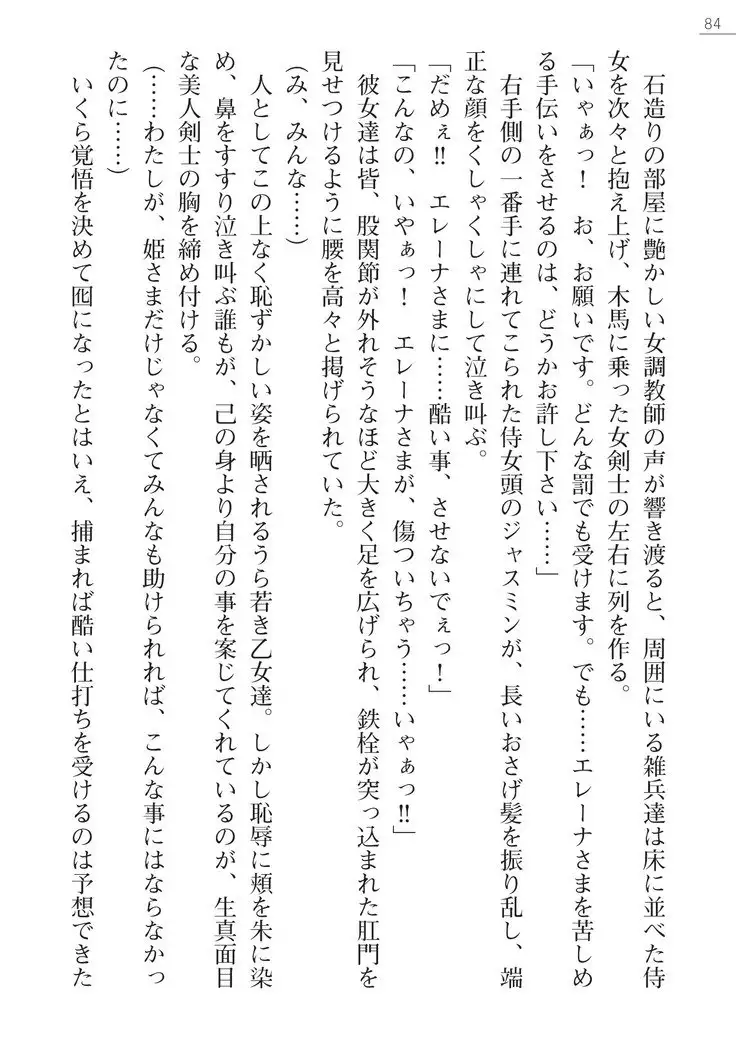 84
石造りの部屋に艶かしい女調教師の声が響き渡ると、周囲にいる雑兵達は床に並べた侍
女を次々と抱え上げ、木馬に乗った女剣士の左右に列を作る。
「いゃぁっ！　お、お願いです。どんな罰でも受けます。でも……エレーナさまを苦しめ
る手伝いをさせるのは、どうかお許し下さい……」
右手側の一番手に連れてこられた侍女頭のジャスミンが、長いおさげ髪を振り乱し、端
正な顔をくしゃくしゃにして泣き叫ぶ。
「だめぇ‼　エレーナさまに……酷い事、させないでぇっ！」
「こんなの、いやぁっ！　エレーナさまが、傷ついちゃう……いゃぁっ‼」
彼女達は皆、股関節が外れそうなほど大きく足を広げられ、鉄栓が突っ込まれた肛門を
見せつけるように腰を高々と掲げられていた。
（み、みんな……）
人としてこの上なく恥ずかしい姿を晒されるうら若き乙女達。しかし恥辱に頬を朱に染
め、鼻をすすり泣き叫ぶ誰もが、己の身より自分の事を案じてくれているのが、生真面目
な美人剣士の胸を締め付ける。
（……わたしが、姫さまだけじゃなくてみんなも助けられれば、こんな事にはならなかっ
たのに……）
いくら覚悟を決めて囮になったとはいえ、捕まれば酷い仕打ちを受けるのは予想できた